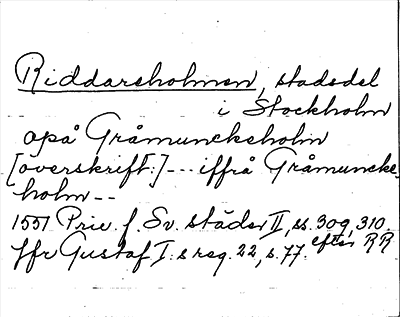 Riddareholmen, stadsdel
i Stockholm
opå Gråmunckeholm
[överskrift:] -- iffrå Gråmuncke
holm --
1551 Priv. f. Sv. städer II, ss. 309, 310.
Jfr Gustaf I:s reg. 22, s. 77. efter RR